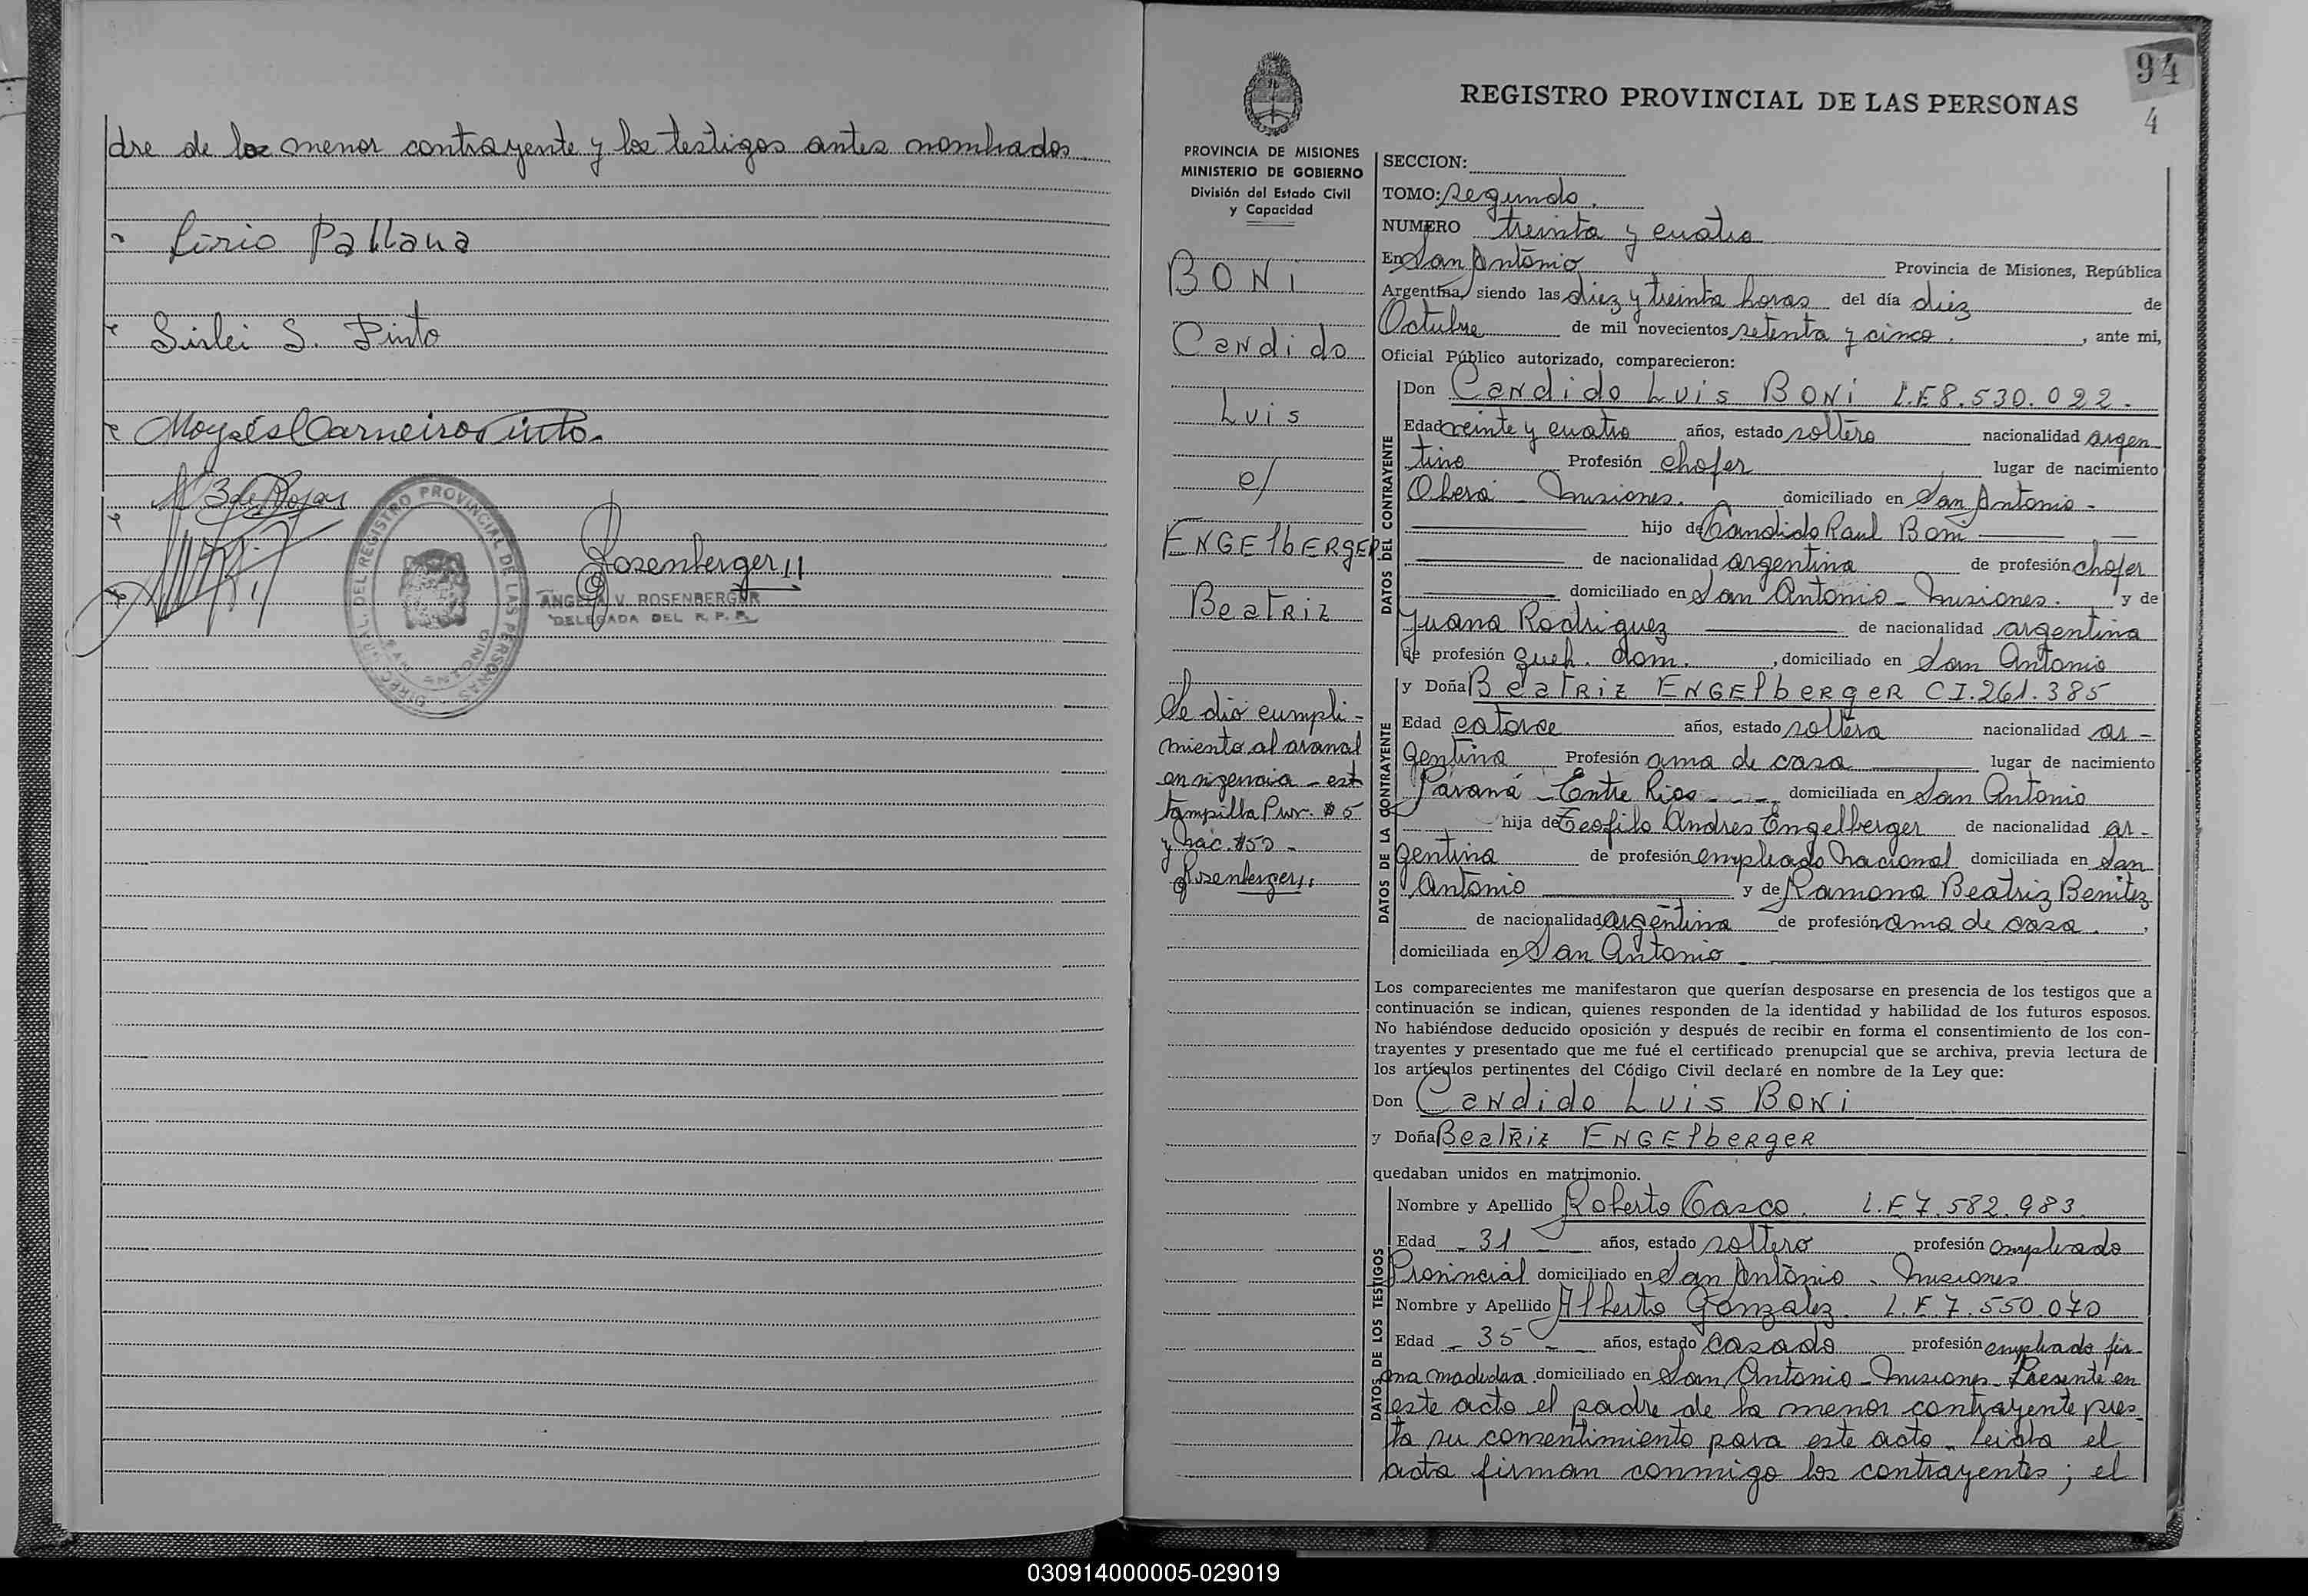 dre de los menor contrayente y los testigos antes nombrados.
Lirio Pallana
Sirlei S. Pinto
Moysés Carneiro Pinto.
Rosenberger
ANGELA V. ROSENBERGER
DELEGADA DEL R. P. P.
DIRECC. GRAL. DEL REGISTRO PROVINCIAL DE LAS PERSONAS
94
4
REGISTRO PROVINCIAL DE LAS PERSONAS
PROVINCIA DE MISIONES
MINISTERIO DE GOBIERNO
División del Estado Civil
y Capacidad
BONi
Candido
Luis
c/
ENGElbERgER
Beatriz
Se dió cumpli-
miento al arancel
en vigencia - est
tampilla Prov. $ 5
y Nac. $50 -
Rosenberger
SECCION:
TOMO: segundo.
NUMERO treinta y cuatro
En San Antonio Provincia de Misiones, República
Argentina, siendo las diez y treinta horas del día diez de
Octubre de mil novecientos setenta y cinco. , ante mi,
Oficial Público autorizado, comparecieron:
DATOS DEL CONTRAYENTE
Don Candido Luis BONi L.E 8.530.022.
Edad veinte y cuatro años, estado soltero nacionalidad argen
tino Profesión chofer lugar de nacimiento
Oberá - Misiones. domiciliado en San Antonio -
hijo de Candido Raul Boni
de nacionalidad argentina de profesión chofer
domiciliado en San Antonio - Misiones. y de
Juana Rodriguez de nacionalidad argentina
de profesión queh. dom. , domiciliado en San Antonio
DATOS DE LA CONTRAYENTE
y Doña Beatriz ENGElbergeR C I. 261.385
Edad catorce años, estado soltera nacionalidad ar-
gentina Profesión ama de casa lugar de nacimiento
Paraná - Entre Rios domiciliada en San Antonio
hija de Teofilo Andres Engelberger de nacionalidad ar-
gentina de profesión empleado Nacional domiciliada en San
Antonio y de Ramona Beatriz Benitez
de nacionalidad argentina de profesión ama de casa. ,
domiciliada en San Antonio -
Los comparecientes me manifestaron que querían desposarse en presencia de los testigos que a
continuación se indican, quienes responden de la identidad y habilidad de los futuros esposos.
No habiéndose deducido oposición y después de recibir en forma el consentimiento de los con-
trayentes y presentado que me fué el certificado prenupcial que se archiva, previa lectura de
los artículos pertinentes del Código Civil declaré en nombre de la Ley que:
Don Candido Luis BONi
y Doña Beatriz ENGElbergeR
quedaban unidos en matrimonio.
DATOS DE LOS TESTIGOS
Nombre y Apellido Roberto Casco. L.E 7.582.983.
Edad - 31 - años, estado soltero profesión empleado
Provincial domiciliado en San Antonio - Misiones
Nombre y Apellido Alberto Gonzalez. L.E. 7.550.070
Edad - 35 - años, estado casado profesión empleado fir-
ma maderera domiciliado en San Antonio - Misiones - Presente en
este acto el padre de la menor contrayente pres
ta su consentimiento para este acto - Leida el
acta firman conmigo los contrayentes; el
030914000005-029019